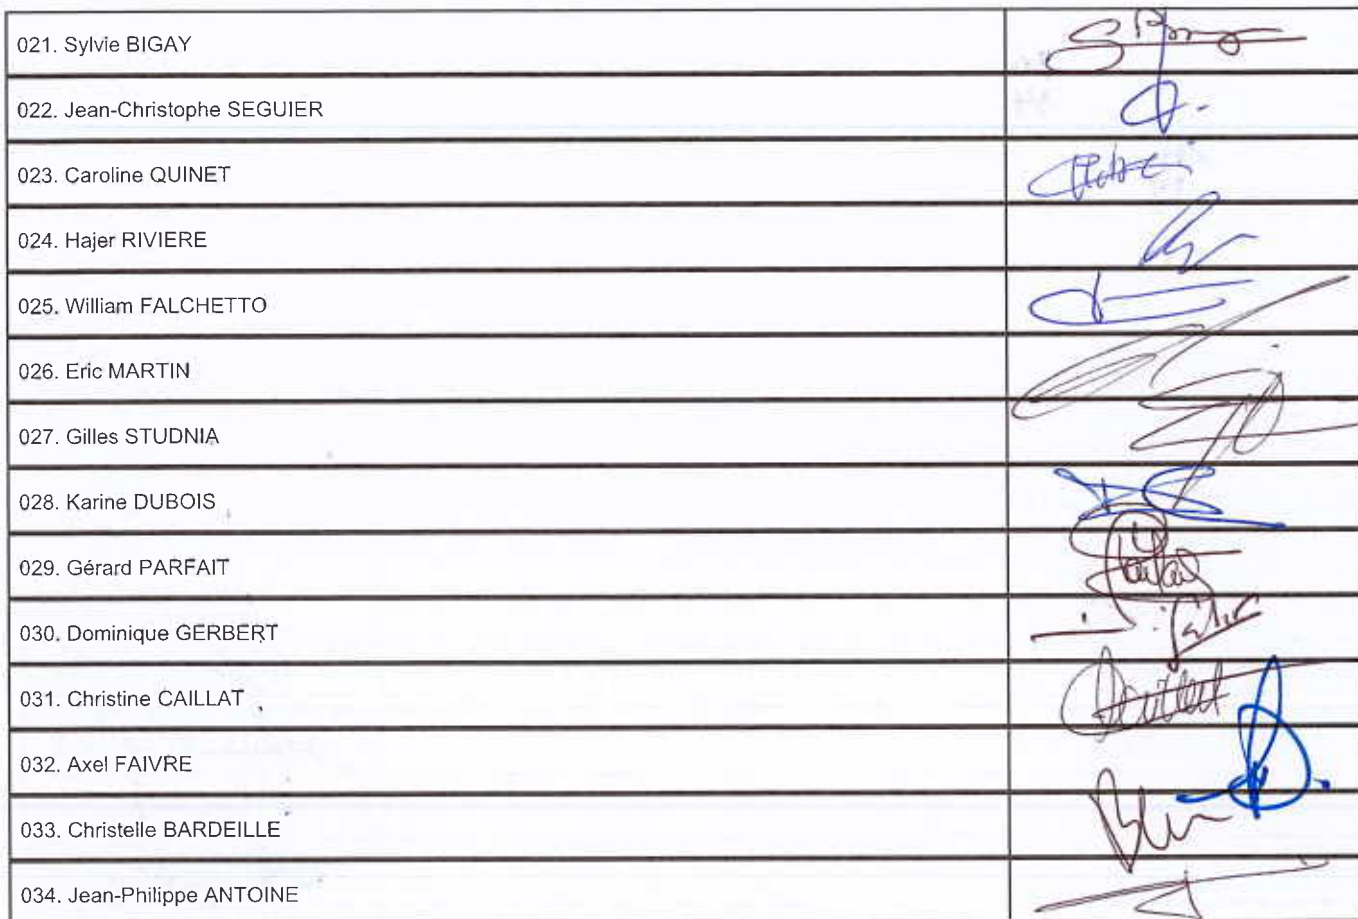 021. Sylvie BIGAY
022. Jean-Christophe SEGUIER
023. Caroline QUINET
024. Hajer RIVIERE
025. William FALCHETTO
026. Eric MARTIN
027. Gilles STUDNIA
028. Karine DUBOIS
029. Gérard PARFAIT
030. Dominique GERBERT
031. Christine CAILLAT
032. Axel FAIVRE
033. Christelle BARDEILLE
034. Jean-Philippe ANTOINE